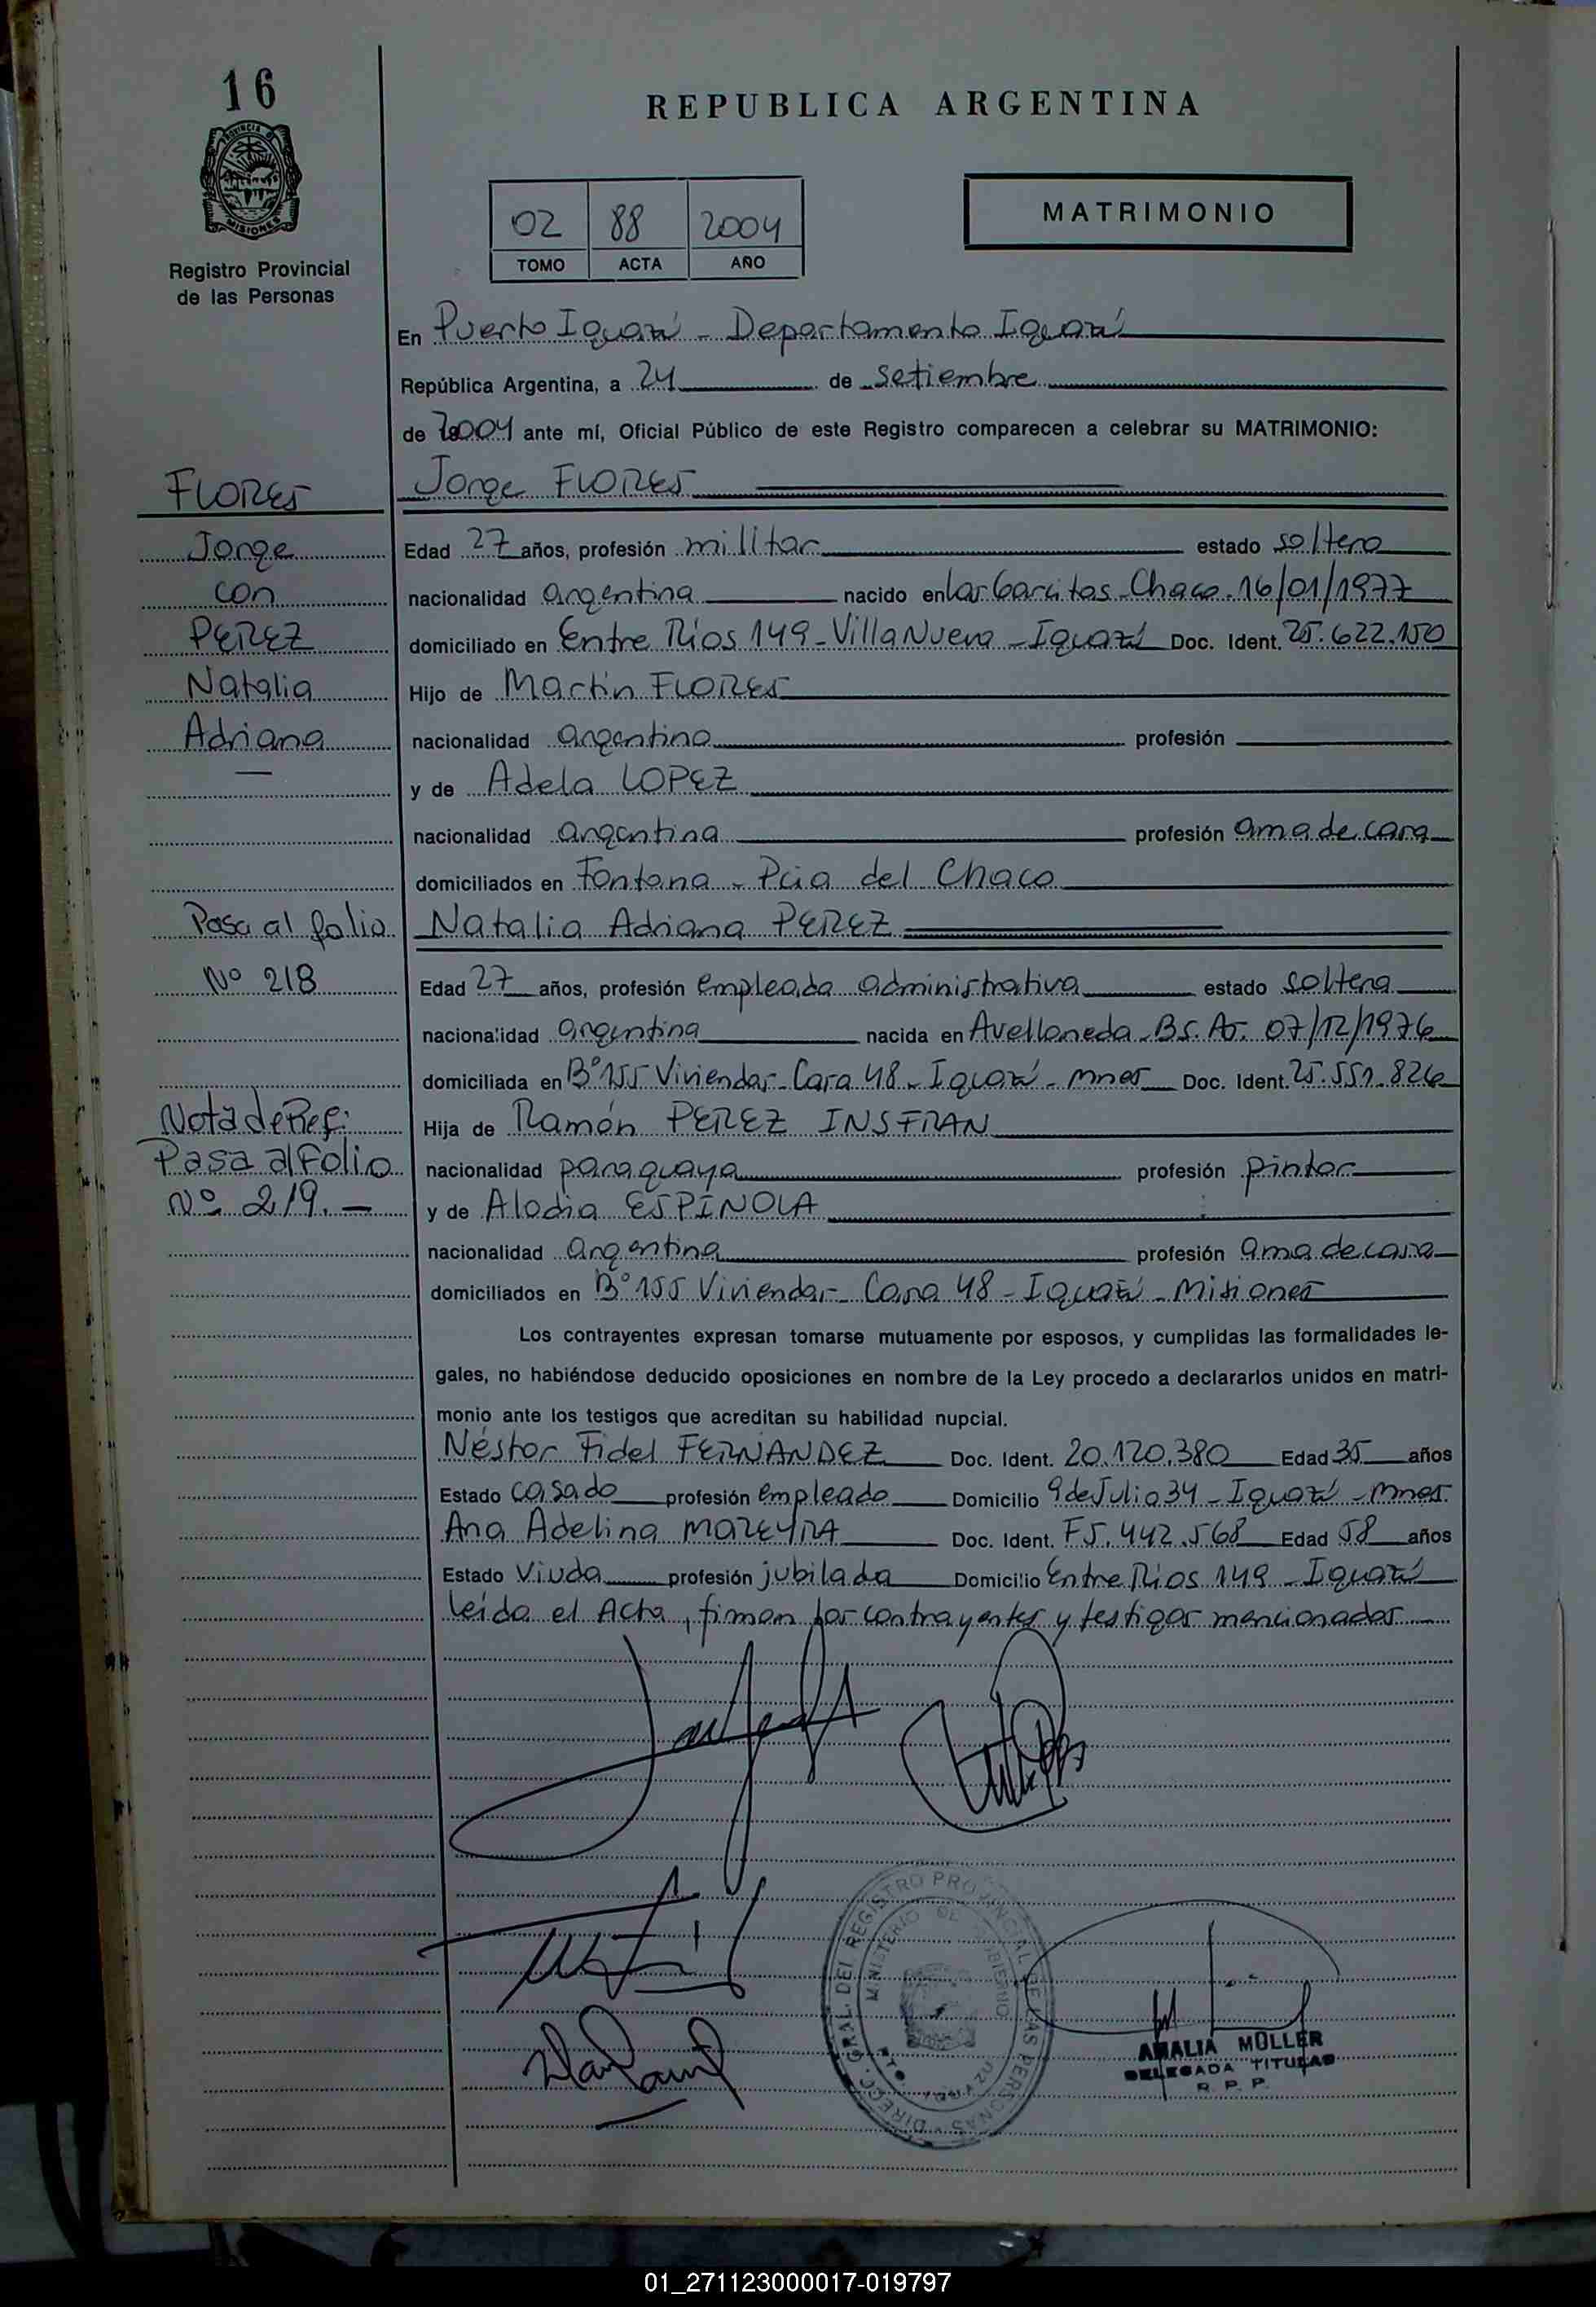 16
REPUBLICA ARGENTINA
PROVINCIA DE
MISIONES
Registro Provincial
de las Personas
02 88 2004
TOMO ACTA AÑO
MATRIMONIO
En Puerto Iguazú - Departamento Iguazú
República Argentina, a 24 de setiembre
de 2004 ante mí, Oficial Público de este Registro comparecen a celebrar su MATRIMONIO:
FLORES
Jorge
con
PEREZ
Natalia
Adriana
Pasa al folio
Nº 218
Nota de Ref:
Pasa al Folio
Nº 219.-
Jorge FLORES
Edad 27 años, profesión militar estado soltero
nacionalidad argentina nacido en Las Garcitas - Chaco - 16/01/1977
domiciliado en Entre Ríos 149 - Villa Nueva - Iguazú Doc. Ident. 25.622.150
Hijo de Martín FLORES
nacionalidad argentino profesión
y de Adela LOPEZ
nacionalidad argentina profesión ama de casa
domiciliados en Fontana - Pcia del Chaco
Natalia Adriana PEREZ
Edad 27 años, profesión empleada administrativa estado soltera
nacionalidad argentina nacida en Avellaneda - Bs. As. 07/12/1976
domiciliada en Bº 155 Viviendas - Casa 48 - Iguazú - Mnes Doc. Ident. 25.551.826
Hija de Ramón PEREZ INSFRAN
nacionalidad paraguaya profesión pintor
y de Alodia ESPÍNOLA
nacionalidad argentina profesión ama de casa
domiciliados en Bº 155 Viviendas - Casa 48 - Iguazú - Misiones
Los contrayentes expresan tomarse mutuamente por esposos, y cumplidas las formalidades le-
gales, no habiéndose deducido oposiciones en nombre de la Ley procedo a declararlos unidos en matri-
monio ante los testigos que acreditan su habilidad nupcial.
Néstor Fidel FERNANDEZ Doc. Ident. 20.120.380 Edad 35 años
Estado casado profesión empleado Domicilio 9 de Julio 34 - Iguazú - Mnes.
Ana Adelina MOREYRA Doc. Ident. F5.442.568 Edad 58 años
Estado Viuda profesión jubilada Domicilio Entre Ríos 149 - Iguazú
leída el Acta, firman los contrayentes y testigos mencionados
DIRECC. GRAL. DEL REGISTRO PROVINCIAL DE LAS PERSONAS
MINISTERIO DE GOBIERNO
PTO. IGUAZU
AMALIA MÜLLER
DELEGADA TITULAR
R. P. P.
01_271123000017-019797